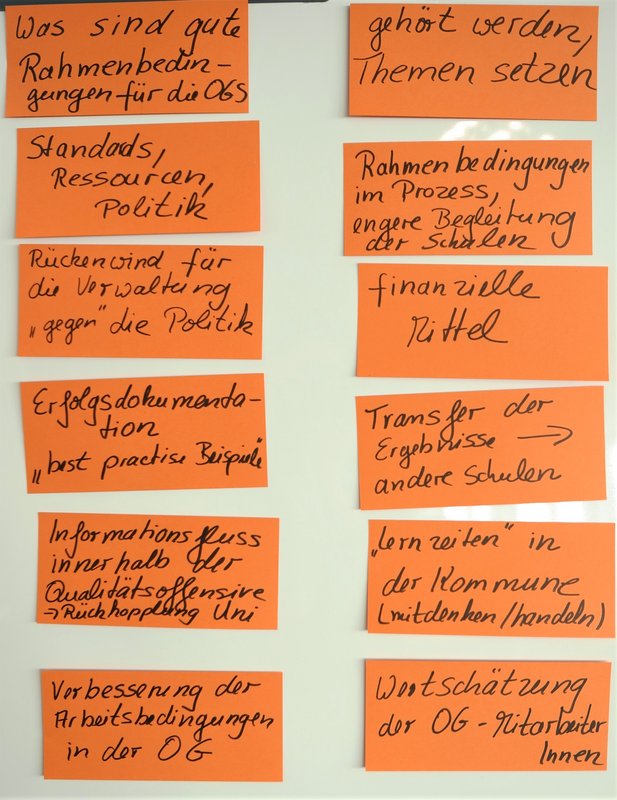 Was sind gute
Rahmenbedin-
gungen für die OGS
Standads,
Ressourcen,
Politik
Rückenwind für
die Verwaltung
„gegen" die Politik
Erfolgsdokumenta-
tion
„best practise Beispiele"
Informationsfluss
innerhalb der
Qualitätsoffensive
→ Rückkopplung Uni
Verbesserung der
Arbeitsbedingungen
in der OG
gehört werden,
Themen setzen
Rahmenbedingungen
im Prozess,
engere Begleitung
der Schulen
finanzielle
Mittel
Transfer der
Ergebnisse →
andere Schulen
„lernzeiten" in
der Kommune
(mitdenken/handeln)
Wertschätzung
der OG-Mitarbeiter
Innen